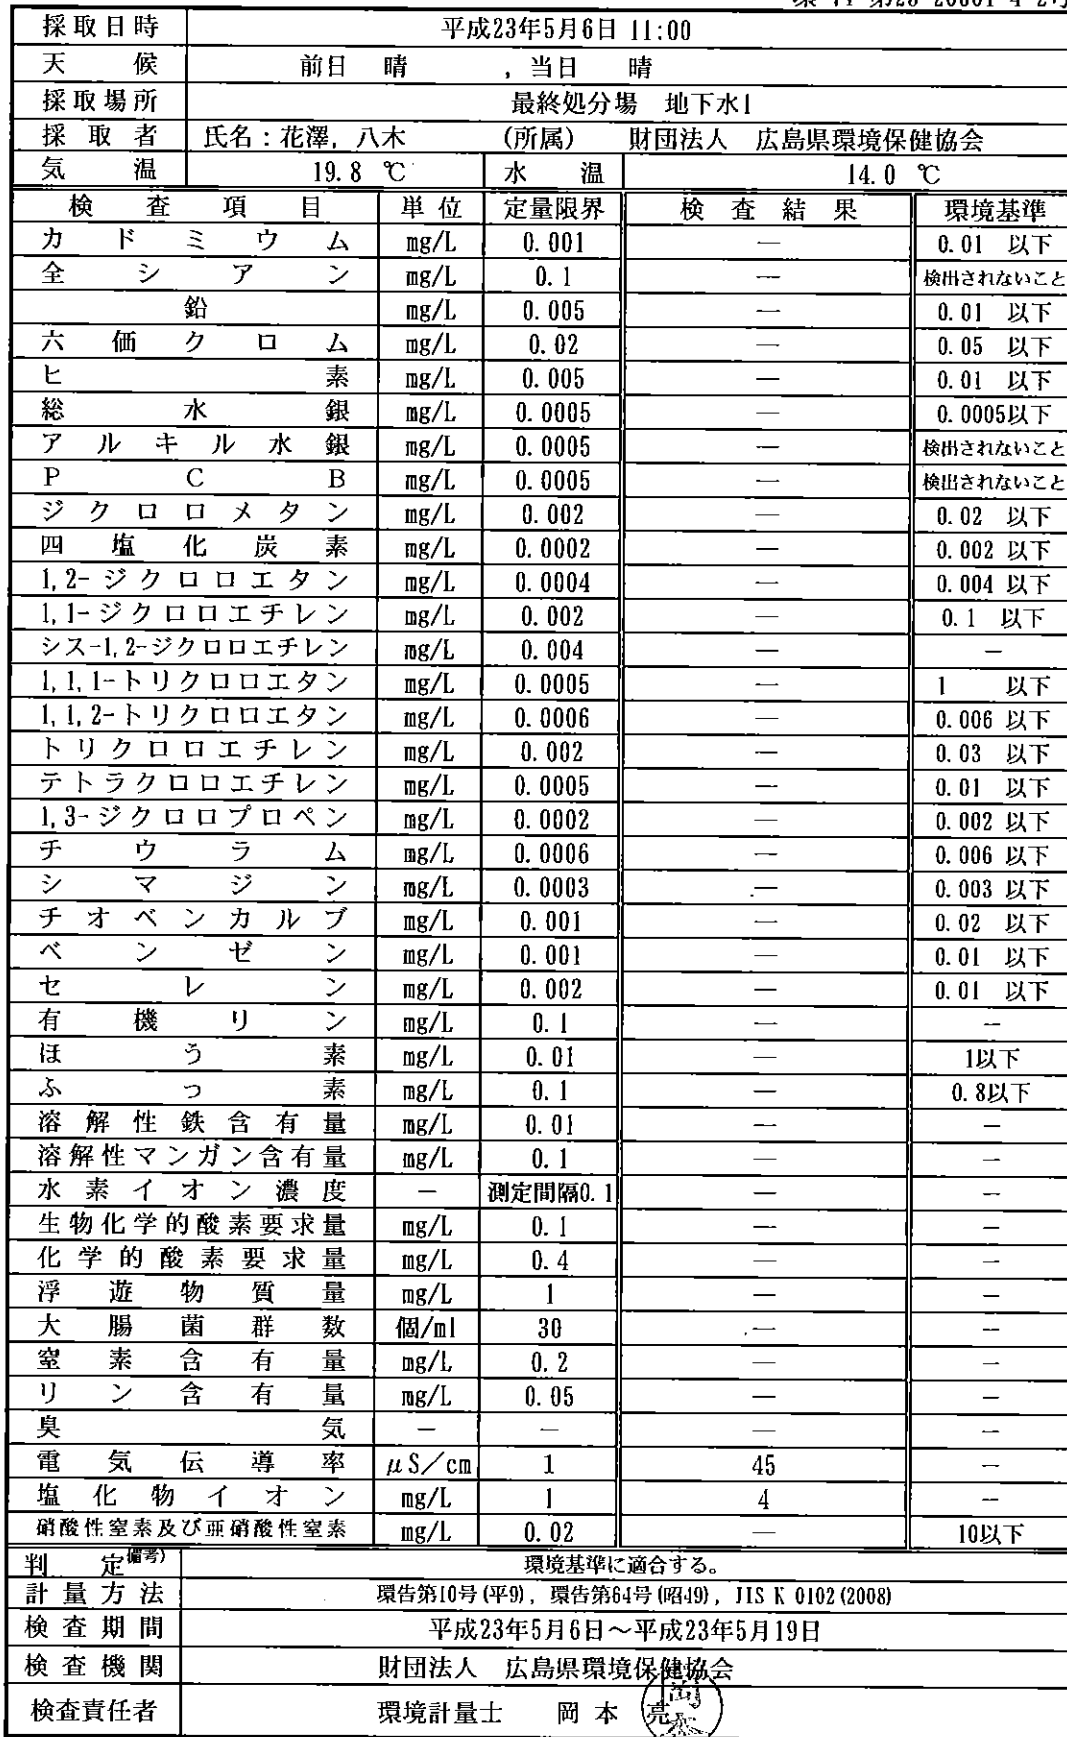 採取日時 平成23年5月6日 11:00
天候 前日 晴 , 当日 晴
採取場所 最終処分場 地下水1
採取者 氏名：花澤, 八木 (所属) 財団法人 広島県環境保健協会
気温 19.8 ℃ 水温 14.0 ℃
検査項目 単位 定量限界 検査結果 環境基準
カドミウム mg/L 0.001 — 0.01 以下
全シアン mg/L 0.1 — 検出されないこと
鉛 mg/L 0.005 — 0.01 以下
六価クロム mg/L 0.02 — 0.05 以下
ヒ素 mg/L 0.005 — 0.01 以下
総水銀 mg/L 0.0005 — 0.0005以下
アルキル水銀 mg/L 0.0005 — 検出されないこと
PCB mg/L 0.0005 — 検出されないこと
ジクロロメタン mg/L 0.002 — 0.02 以下
四塩化炭素 mg/L 0.0002 — 0.002 以下
1,2-ジクロロエタン mg/L 0.0004 — 0.004 以下
1,1-ジクロロエチレン mg/L 0.002 — 0.1 以下
シス-1,2-ジクロロエチレン mg/L 0.004 — —
1,1,1-トリクロロエタン mg/L 0.0005 — 1 以下
1,1,2-トリクロロエタン mg/L 0.0006 — 0.006 以下
トリクロロエチレン mg/L 0.002 — 0.03 以下
テトラクロロエチレン mg/L 0.0005 — 0.01 以下
1,3-ジクロロプロペン mg/L 0.0002 — 0.002 以下
チウラム mg/L 0.0006 — 0.006 以下
シマジン mg/L 0.0003 — 0.003 以下
チオベンカルブ mg/L 0.001 — 0.02 以下
ベンゼン mg/L 0.001 — 0.01 以下
セレン mg/L 0.002 — 0.01 以下
有機リン mg/L 0.1 — —
ほう素 mg/L 0.01 — 1以下
ふっ素 mg/L 0.1 — 0.8以下
溶解性鉄含有量 mg/L 0.01 — —
溶解性マンガン含有量 mg/L 0.1 — —
水素イオン濃度 — 測定間隔0.1 — —
生物化学的酸素要求量 mg/L 0.1 — —
化学的酸素要求量 mg/L 0.4 — —
浮遊物質量 mg/L 1 — —
大腸菌群数 個/ml 30 — —
窒素含有量 mg/L 0.2 — —
リン含有量 mg/L 0.05 — —
臭気 — — — —
電気伝導率 μS/cm 1 45 —
塩化物イオン mg/L 1 4 —
硝酸性窒素及び亜硝酸性窒素 mg/L 0.02 — 10以下
判定備考) 環境基準に適合する。
計量方法 環告第10号(平9), 環告第64号(昭49), JIS K 0102(2008)
検査期間 平成23年5月6日～平成23年5月19日
検査機関 財団法人 広島県環境保健協会
検査責任者 環境計量士 岡本 亮